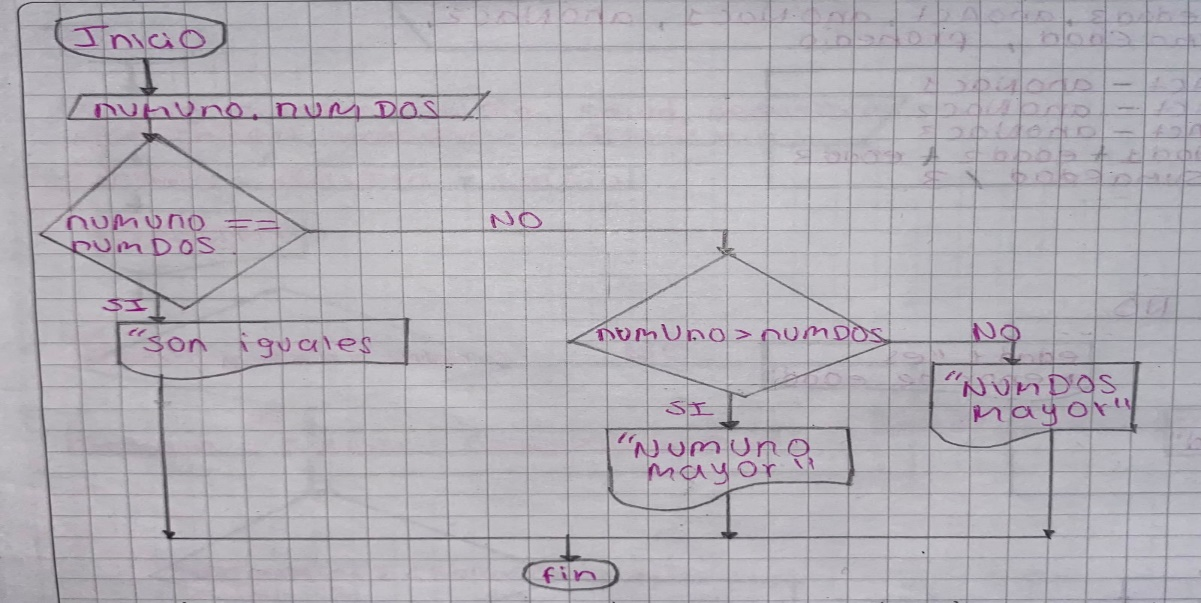 Inicio
numuno, num DOS
numuno ==
numDOS
NO
SI
"son iguales
numuno > numDOS
NO
"NumDOS
mayor"
SI
"Numuno
mayor"
fin